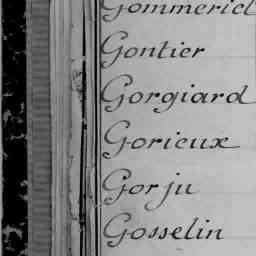 Gommeriel
Gontier
Gorgiard
Gorieux
Gorju
Gosselin